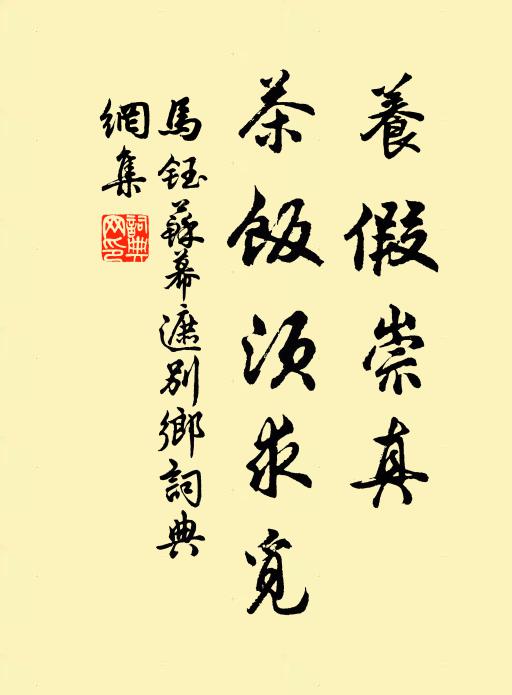 養假崇真
茶飯須求覓
馬鈺蘇幕遮別鄉詞典
網集
詞典網印